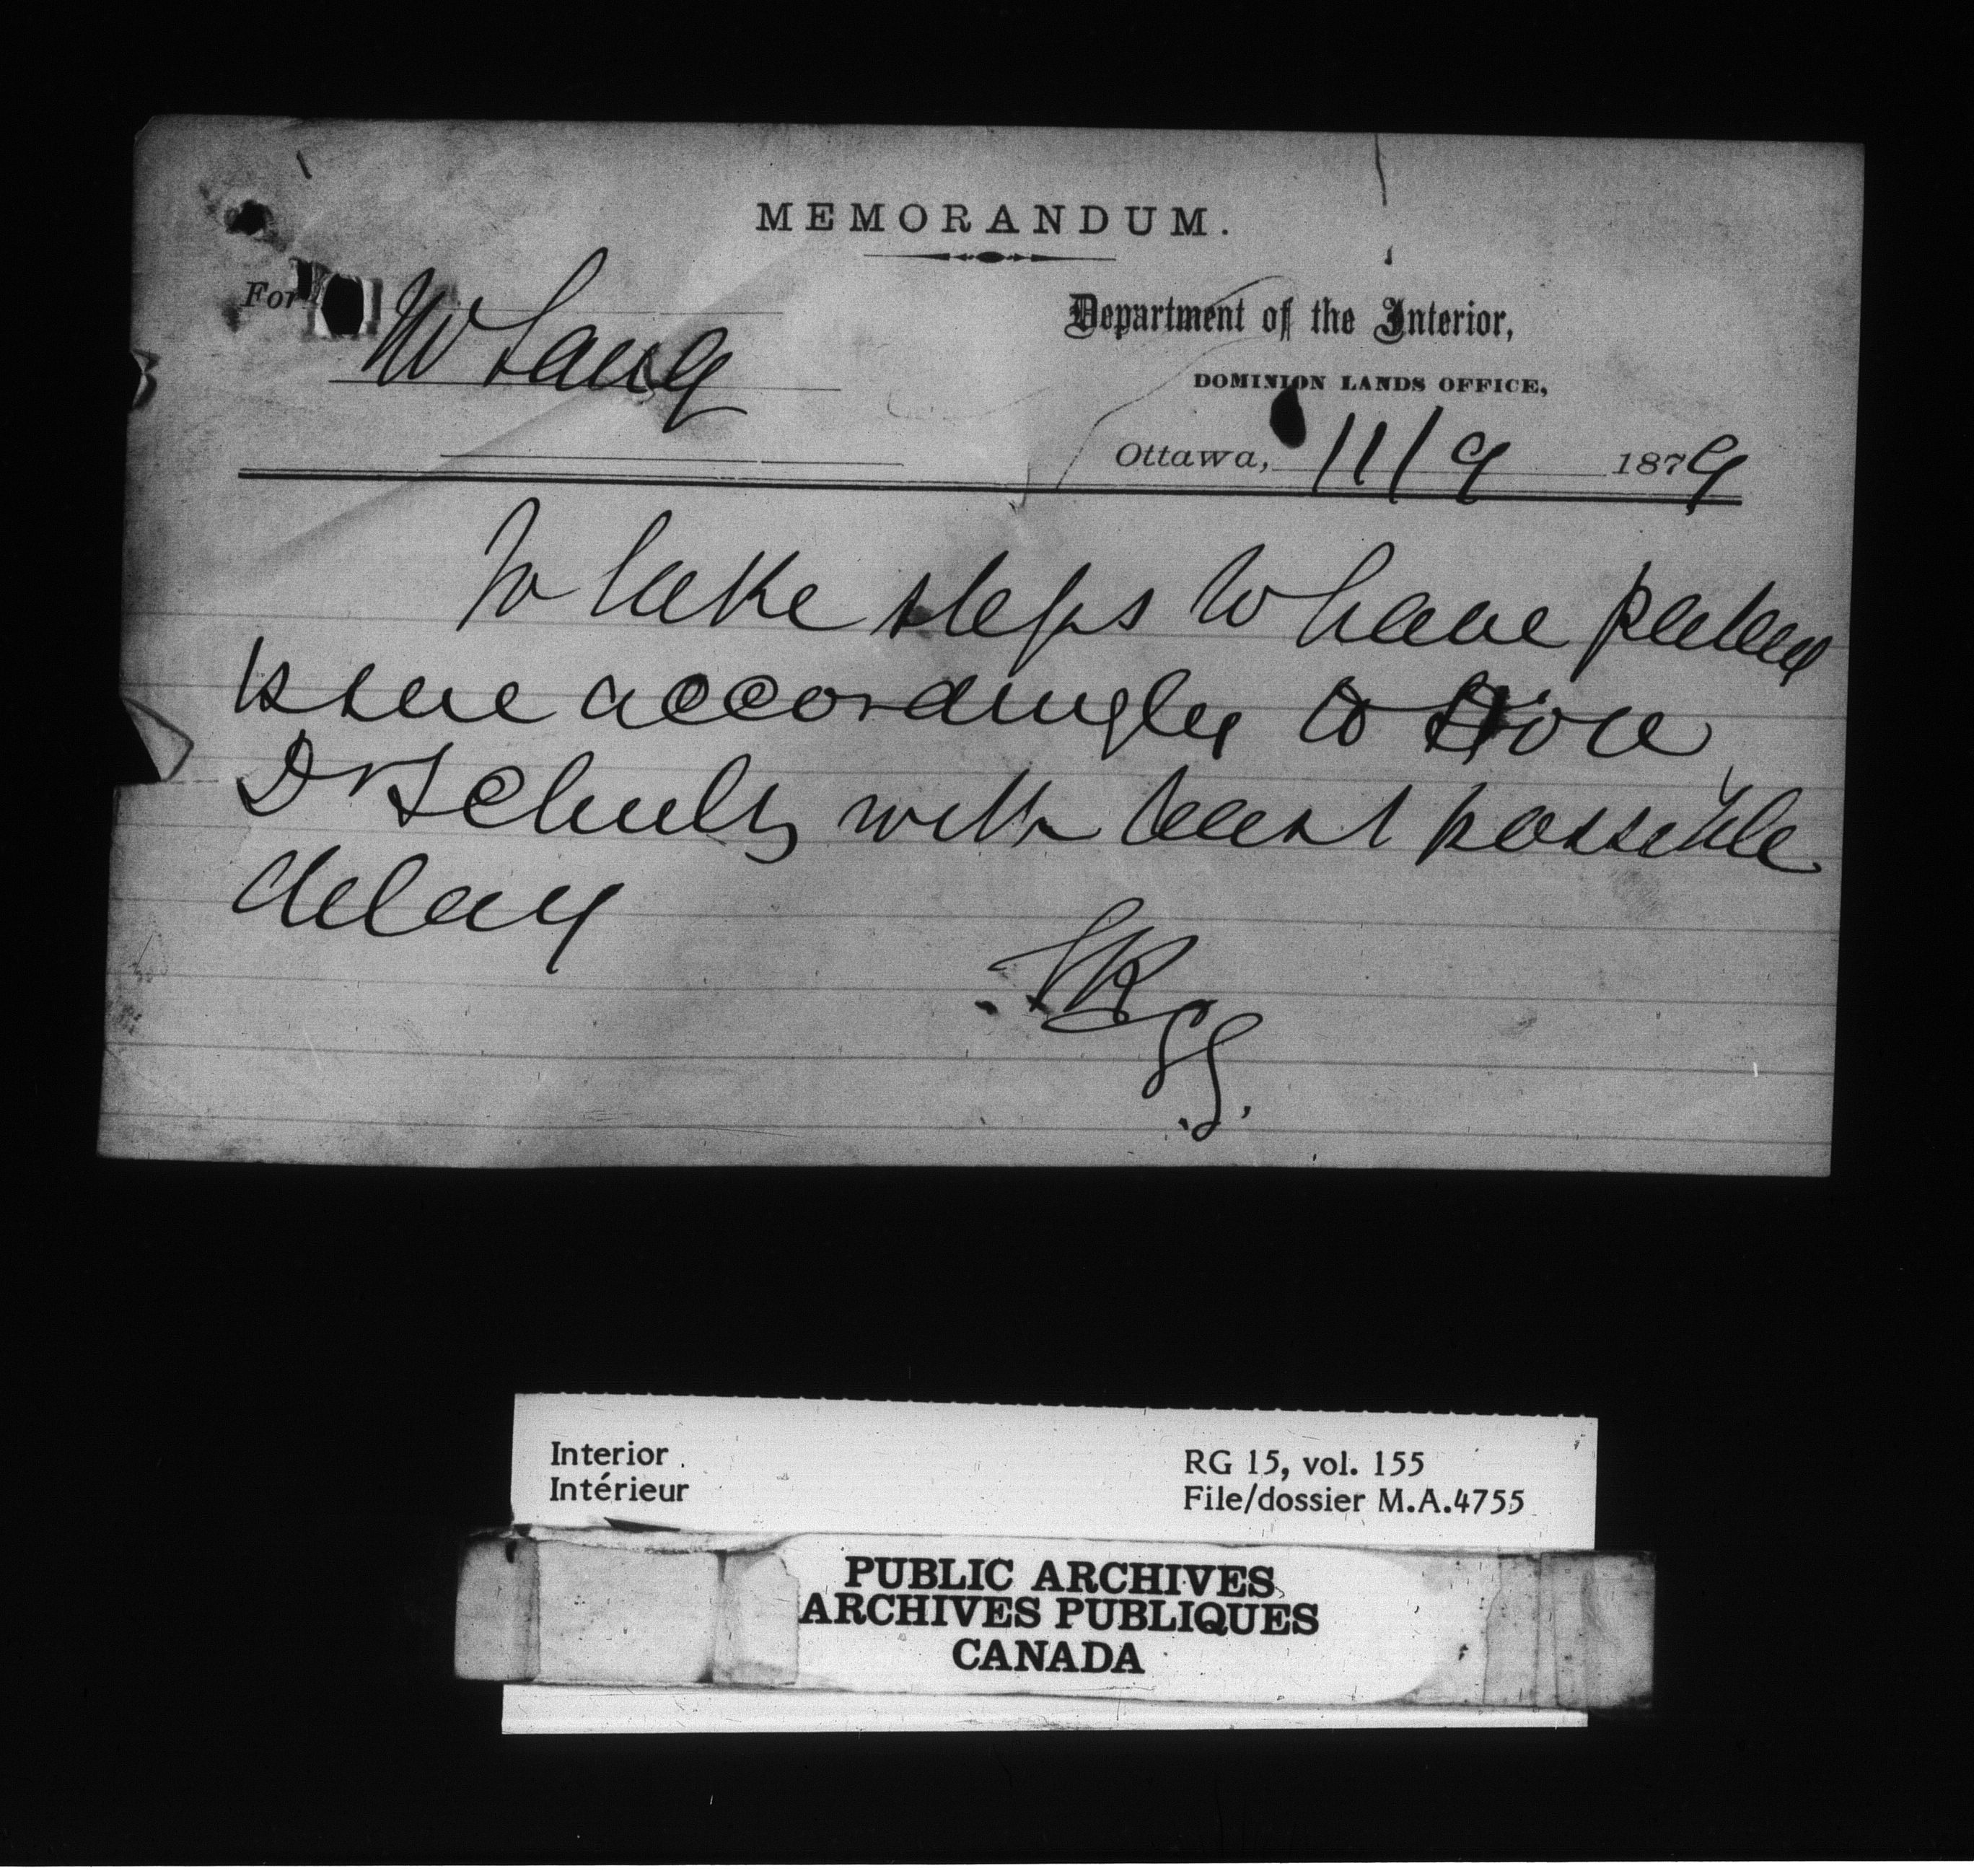 MEMORANDUM.
For Mr Lang
Department of the Interior,
DOMINION LANDS OFFICE,
Ottawa, 11/9 1879
To take steps to have patent
issue accordingly to Hon
Dr Schultz with least possible
delay
Interior
Intérieur
RG 15, vol. 155
File/dossier M.A.4755
PUBLIC ARCHIVES
ARCHIVES PUBLIQUES
CANADA